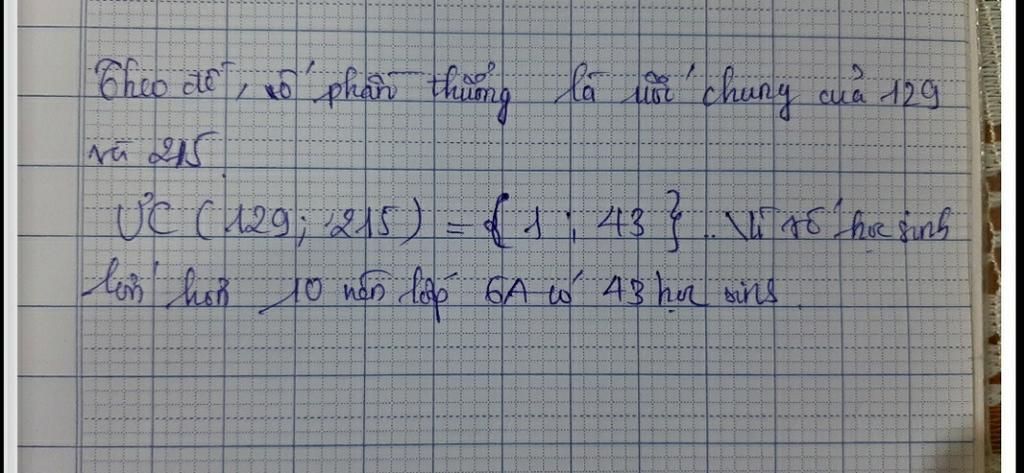 Theo đề, số phần thưởng là ước chung của 129
và 215
ƯC (129; 215) = {1; 43}. Vì số học sinh
lớn hơn 10 nên lớp 6A có 43 học sinh.